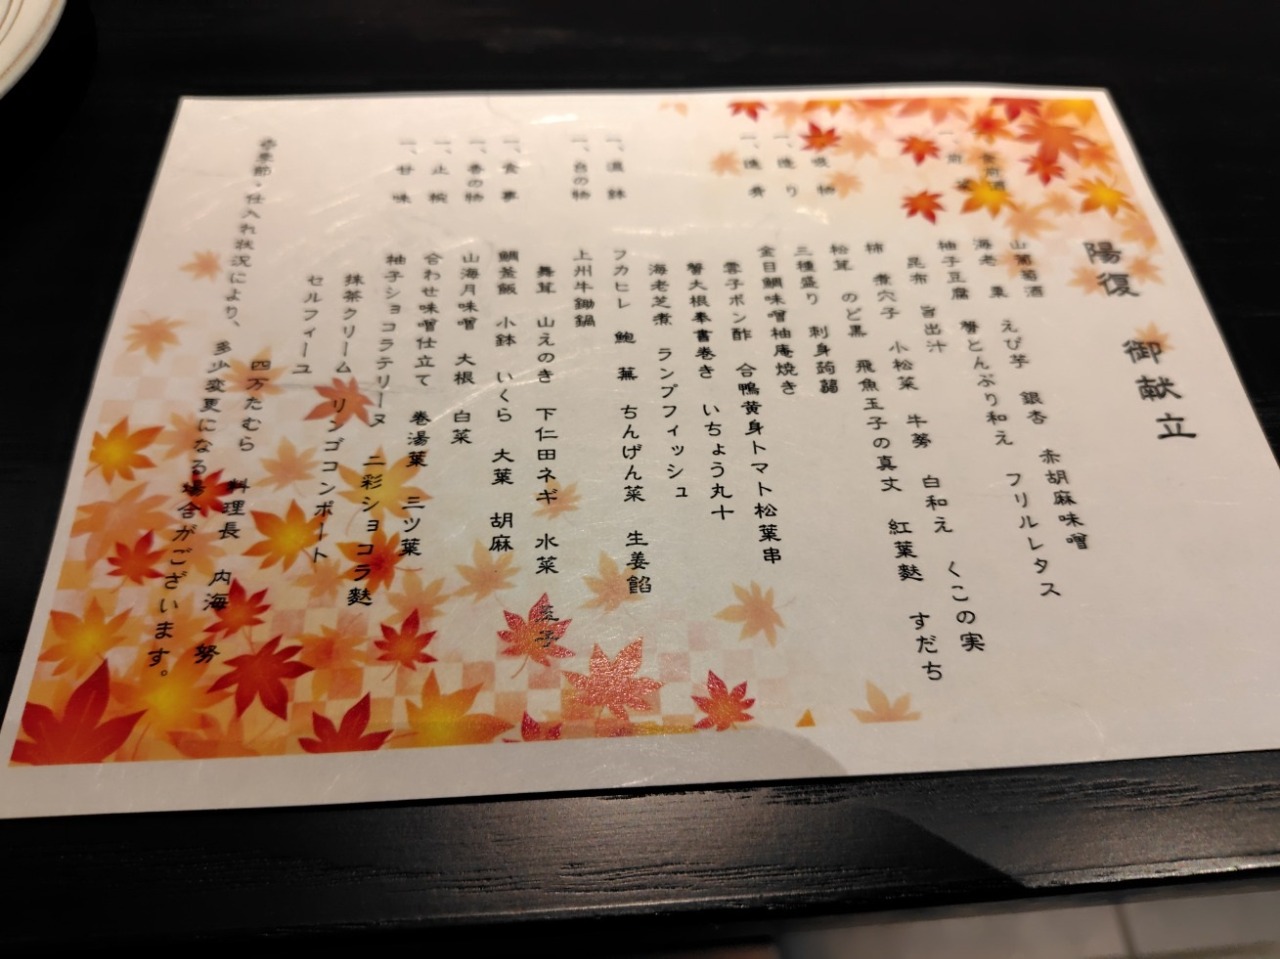 陽復 御献立
食前酒 山葡萄酒
一、前菜 海老 栗 えび芋 銀杏 赤胡麻味噌
柚子豆腐 蟹とんぶり和え フリルレタス
昆布 旨出汁
柿 煮穴子 小松菜 牛蒡 白和え くこの実
一、吸物 松茸 のど黒 飛魚玉子の真丈 紅葉麩 すだち
一、造り 三種盛り 刺身蒟蒻
一、焼肴 金目鯛味噌柚庵焼き
雲子ポン酢 合鴨黄身トマト松葉串
蟹大根奉書巻き いちょう丸十
海老芝煮 ランプフィッシュ
一、温鉢 フカヒレ 鮑 蕪 ちんげん菜 生姜餡
一、台の物 上州牛鋤鍋
舞茸 山えのき 下仁田ネギ 水菜 玉子
一、食事 鯛釜飯 小鉢 いくら 大葉 胡麻
一、香の物 山海月味噌 大根 白菜
一、止椀 合わせ味噌仕立て 巻湯葉 三ツ葉
一、甘味 柚子ショコラテリーヌ 二彩ショコラ麩
抹茶クリーム リンゴコンポート
セルフィーユ
四万たむら 料理長 内海 努
季節・仕入れ状況により、多少変更になる場合がございます。